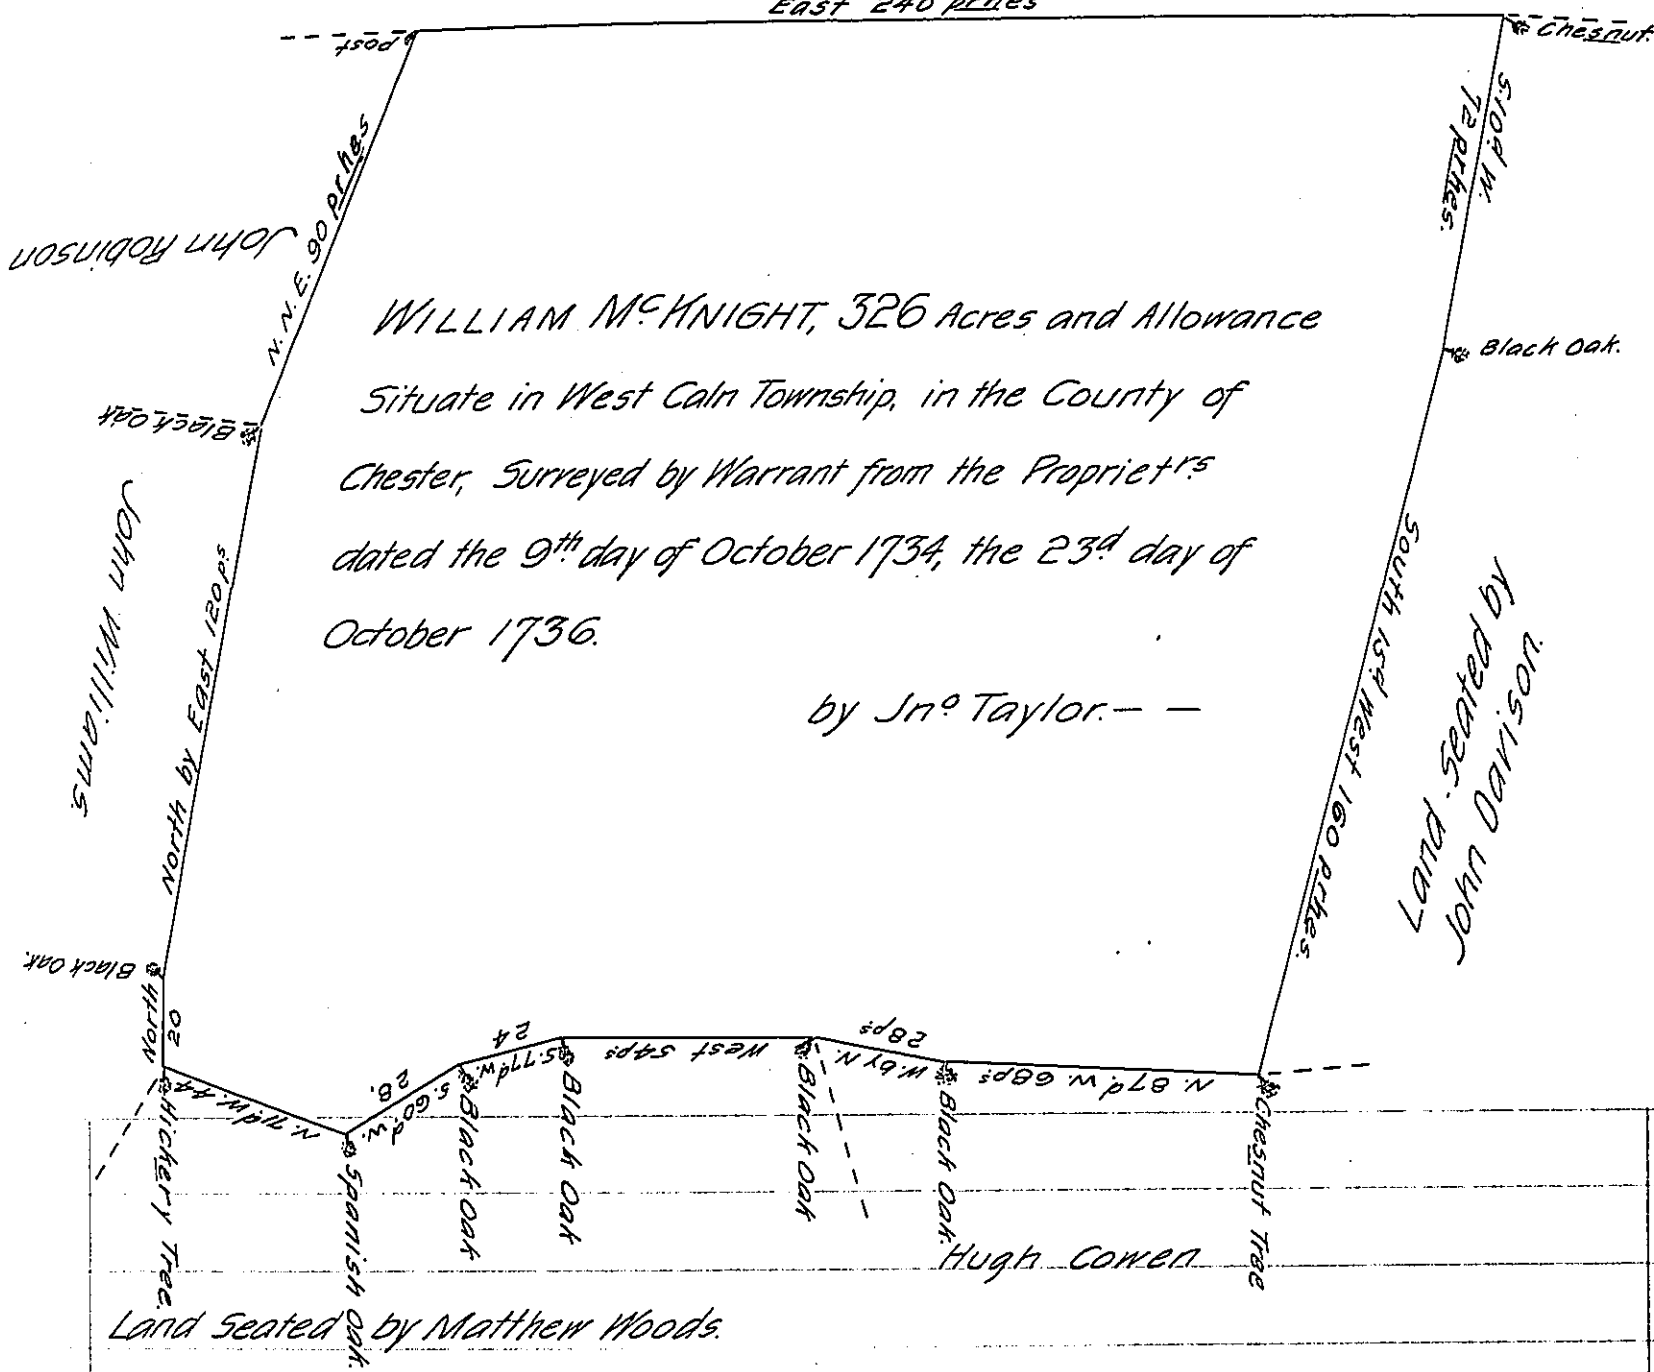 East 240 prhes
post
Chesnut.
S.10d W.
72 prhes.
N.N.E. 90 Prhes
John Robinson
WILLIAM McKNIGHT, 326 Acres and Allowance
Black Oak.
Situate in West Caln Township, in the County of
Black oak
Chester, Surveyed by Warrant from the Proprietrs
dated the 9th day of October 1734, the 23d day of
October 1736.
John Williams
North by East 120 ps
South 15d West 160 prhes.
Land Seated by
John Davison.
by Jno Taylor. — —
Black Oak.
North
20
N. 71d W. 44
S. 60d W.
28.
S. 77d W.
24
West 54ps
W. by N.
28ps
N. 87d W. 68ps
Hickery Tree.
Spanish Oak.
Black Oak
Black Oak
Black Oak
Black Oak.
Chesnut Tree
Hugh Cowen
Land Seated by Matthew Woods.